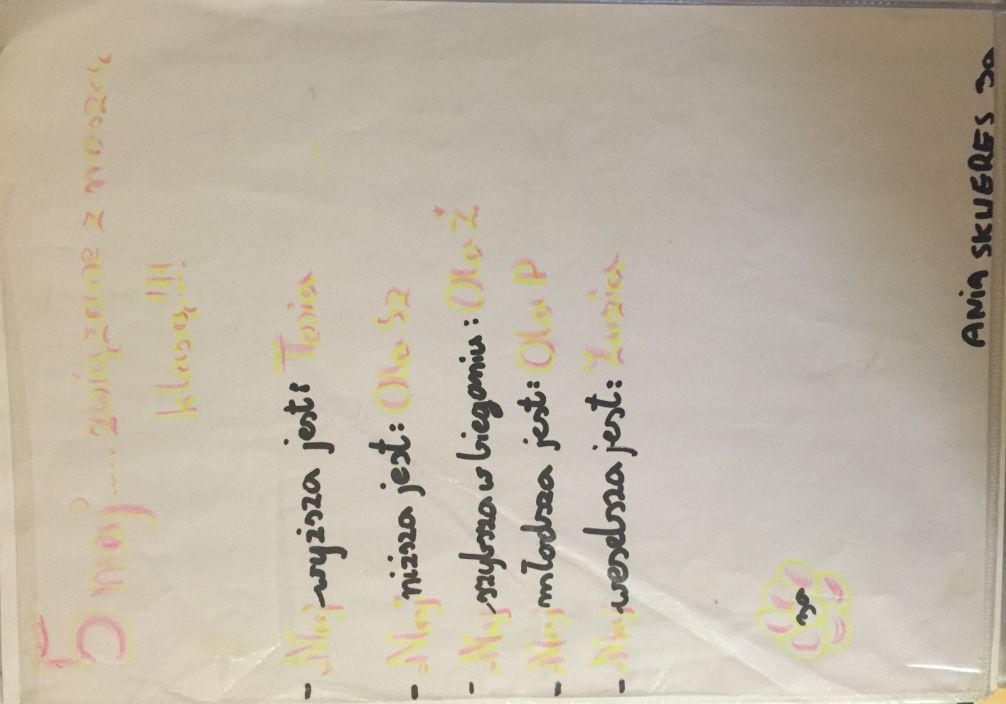 5 naj... związane z naszą
klasą!!!
- Naj-wyższa jest: Tosia
- Naj niższa jest: Ola Sz
- Naj-szybsza w bieganiu: Ola Ż
- Naj młodsza jest: Ola P
- Naj weselsza jest: Zuzia
3a
ANIA SKWERES 3a